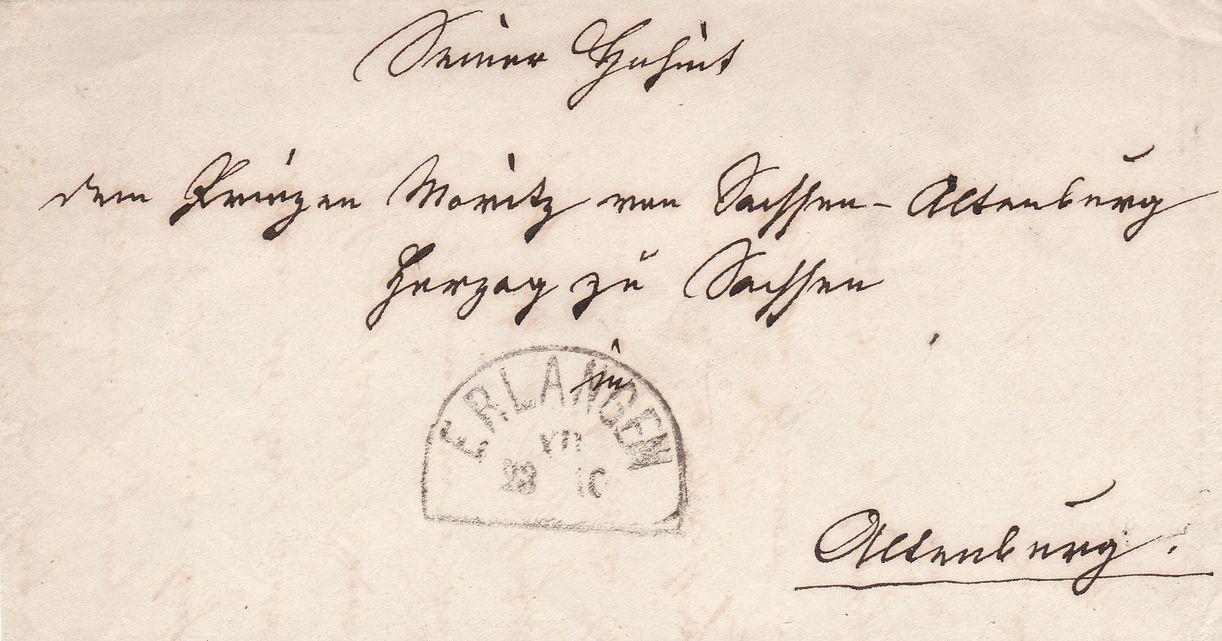 Seiner Hoheit
dem Prinzen Moritz von Sachsen-Altenburg
Herzog zu Sachsen
in
ERLANGEN
VII
23 10
Altenburg.